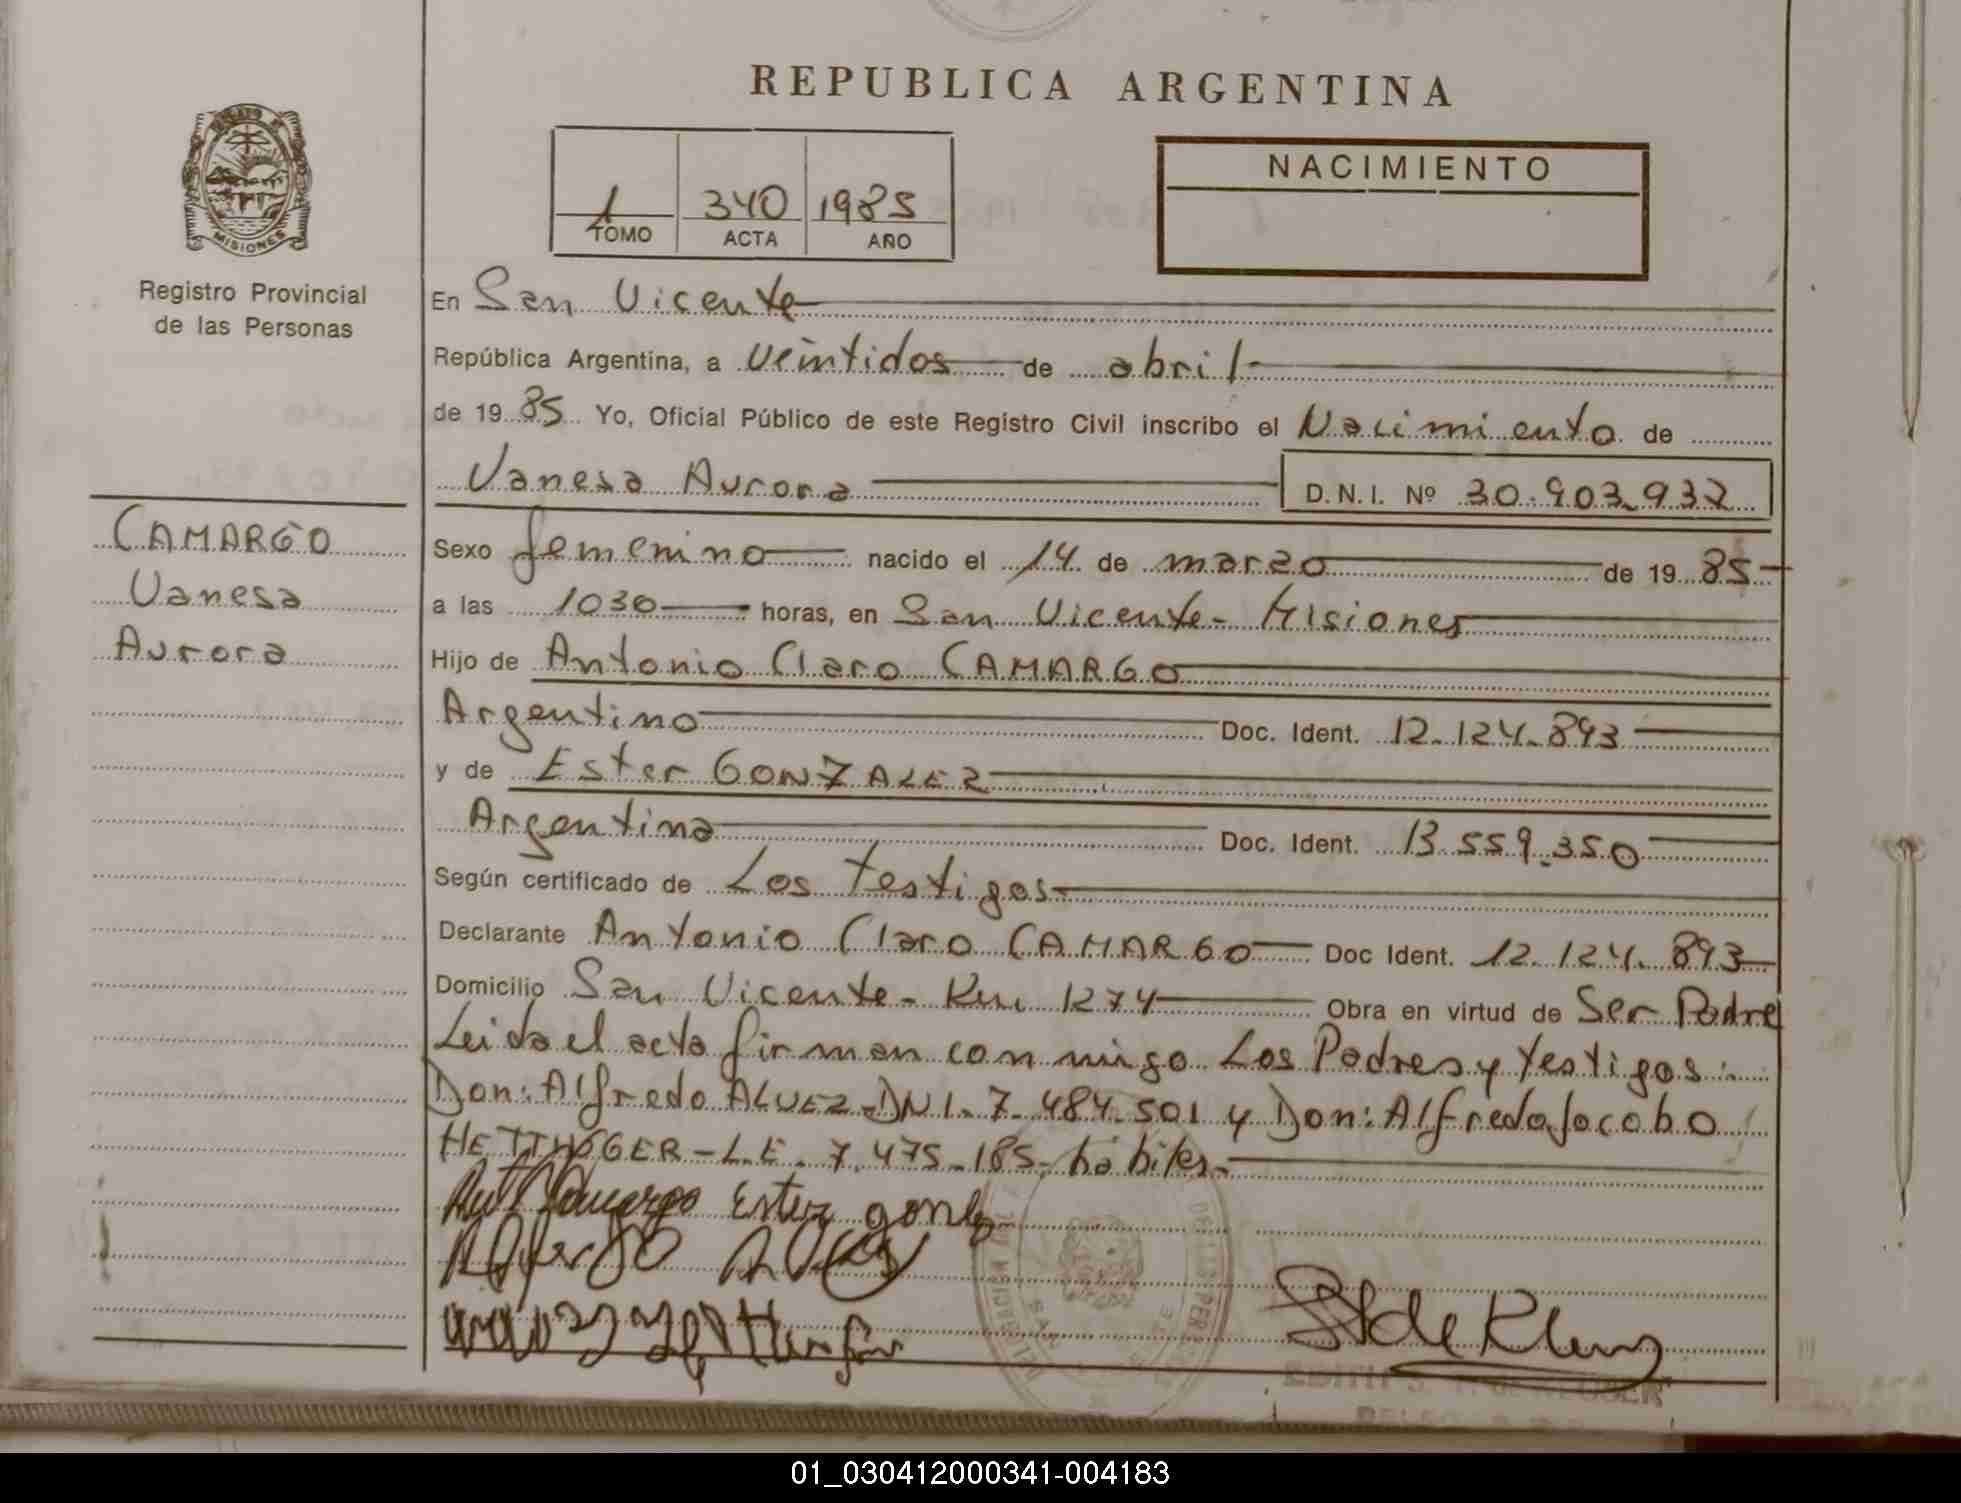 REPUBLICA ARGENTINA
MISIONES
Registro Provincial
de las Personas
1 340 1985
TOMO ACTA AÑO
NACIMIENTO
En San Vicente
República Argentina, a veintidos de abril
de 1985 Yo, Oficial Público de este Registro Civil inscribo el Nacimiento de
Vanesa Aurora D.N.I. Nº 30.903.932
CAMARGO
Vanesa
Aurora
Sexo femenino nacido el 14 de marzo de 1985
a las 1030 horas, en San Vicente - Misiones
Hijo de Antonio Claro CAMARGO
Argentino Doc. Ident. 12.124.893
y de Ester GONZALEZ
Argentina Doc. Ident. 13.559.350
Según certificado de Los testigos
Declarante Antonio Claro CAMARGO Doc Ident. 12.124.893
Domicilio San Vicente - Km 1274 Obra en virtud de Ser Padre
Leida el acta firman con migo Los Padres y testigos:
Don: Alfredo ALVEZ - DNI. 7.484.501 y Don: Alfredo Jacobo
HETTINGGER - L.E. 7.475.185 - hábiles.
Camargo Ester
01_030412000341-004183